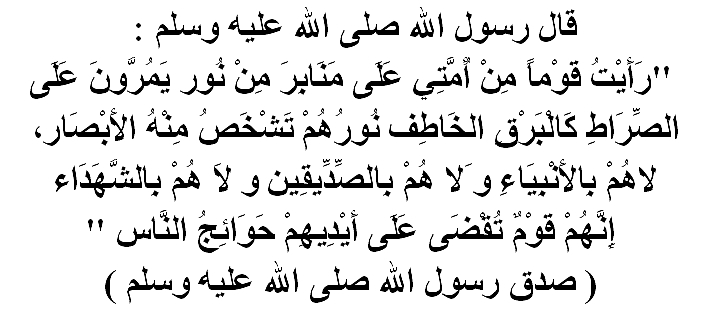 قال رسول الله صلى الله عليه وسلم :
"رَأَيْتُ قوْماً مِنْ أمَّتِي عَلَى مَنَابرَ مِنْ نُور يَمُرَّونَ عَلَى
الصِّرَاطِ كَالْبَرْقِ الخَاطِف نُورُهُمْ تَشْخَصُ مِنْهُ الأبْصَار،
لاهُمْ بالأنْبيَاءِ وَلا هُمْ بالصِّدِّيقِين و لاَ هُمْ بالشَّهَدَاء
إنَّهُمْ قوْمٌ تُقْضَى عَلَى أيْدِيهِمْ حَوَائِجُ النَّاس "
( صدق رسول الله صلى الله عليه وسلم )